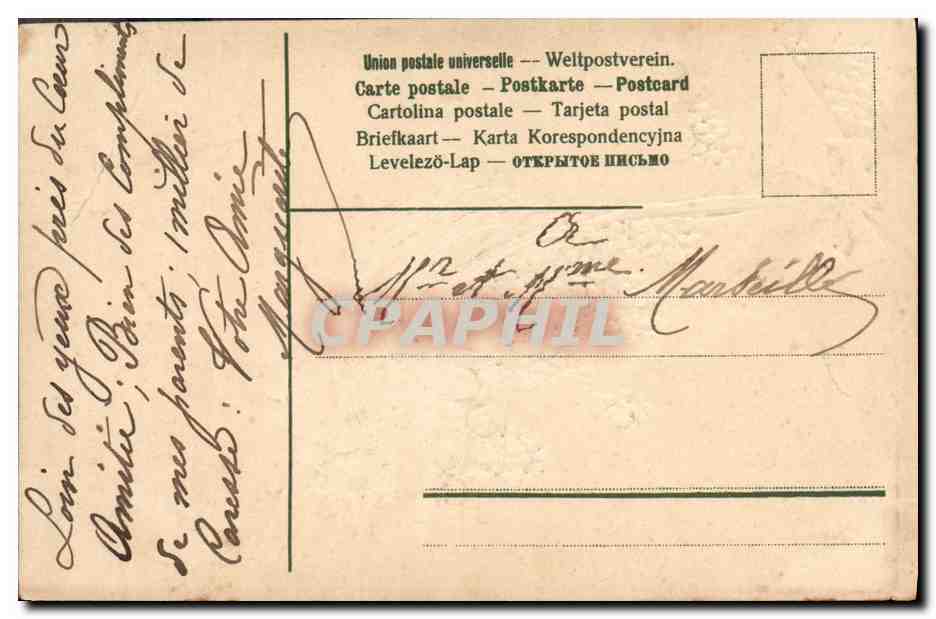 Loin des yeux près du Coeur
Amitié; Bien des Compliments
de mes parents; 1 millier de
Caresse: Votre Amie
Marguerite
Union postale universelle — Weltpostverein.
Carte postale – Postkarte — Postcard
Cartolina postale — Tarjeta postal
Briefkaart — Karta Korespondencyjna
Levelező-Lap — ОТКРЫТОЕ ПИСЬМО
A
Mr et Mme. Marseille
CPAPHIL